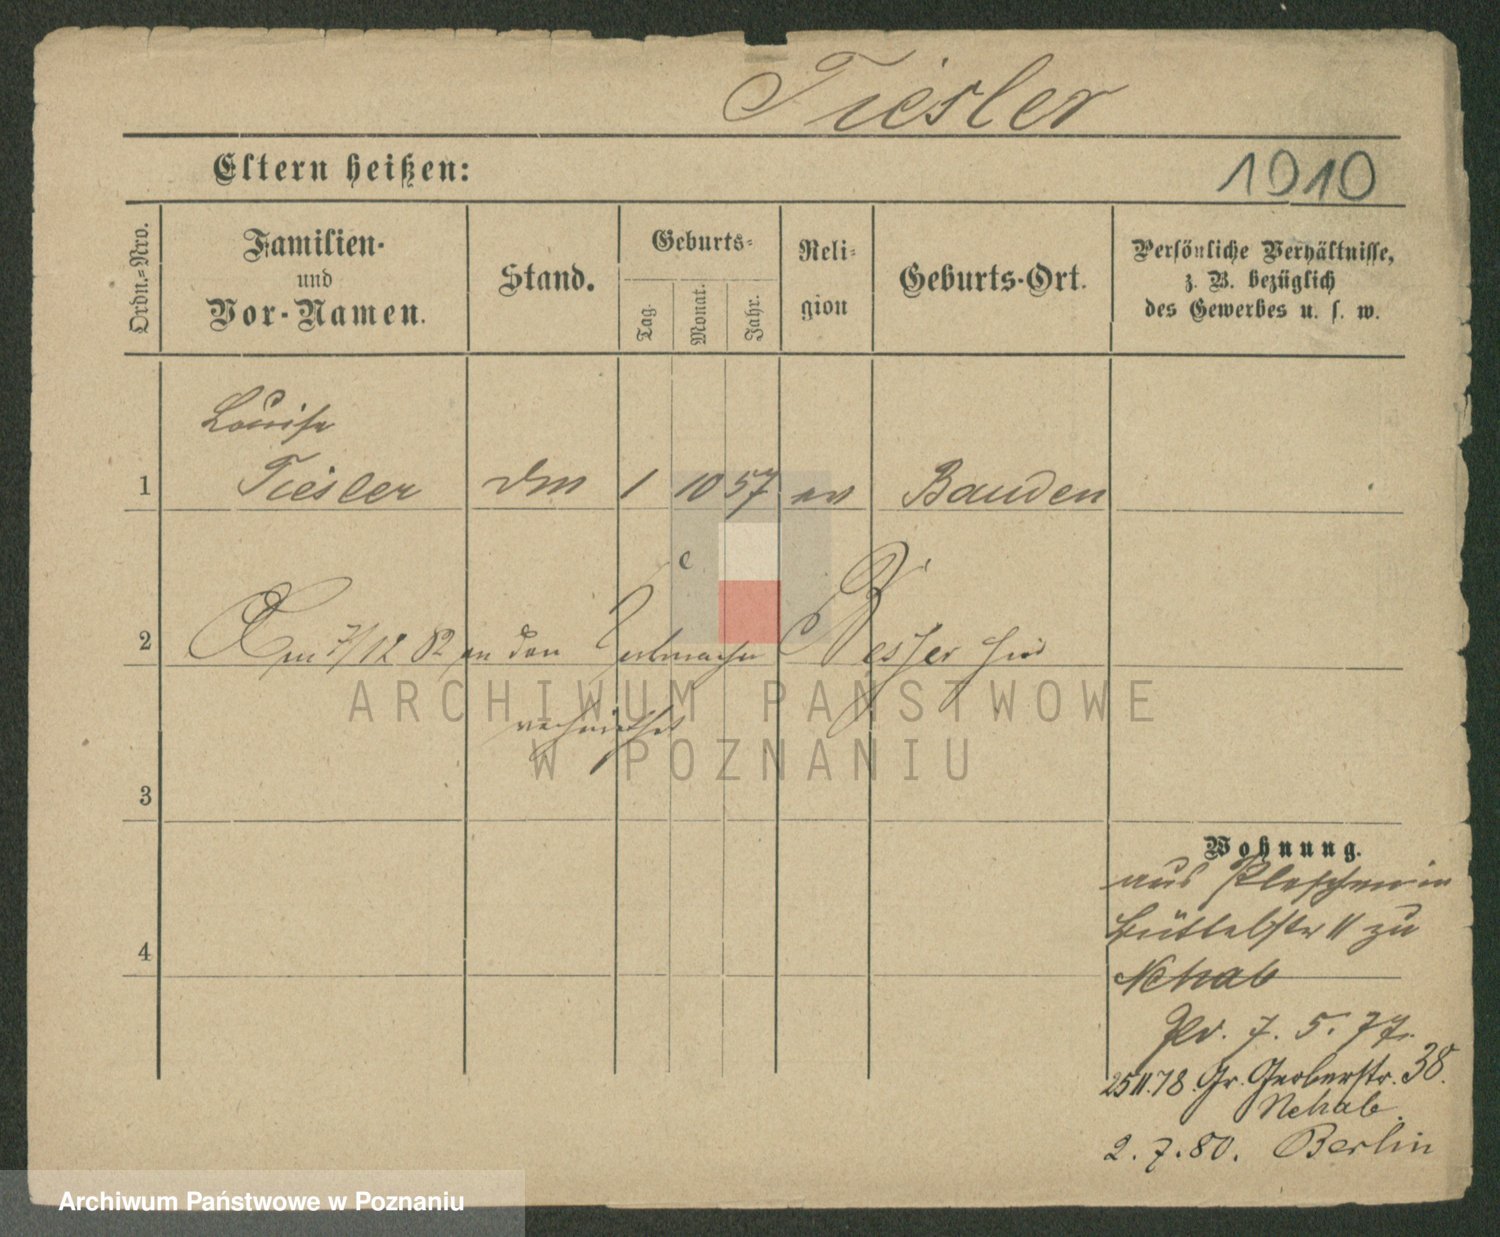 Tiesler
Eltern heißen:
1910
Ordn.-Nro.
Familien-
und
Vor-Namen.
Stand.
Geburts-
Tag.
Monat.
Jahr.
Reli-
gion
Geburts-Ort.
Persönliche Verhältnisse,
z. B. bezüglich
des Gewerbes u. s. w.
Louise
1 Tiesler 1 10 57 ev Bauden
2 Am 7/12 82 an den hier
verheirathet
ARCHIWUM PAŃSTWOWE
W POZNANIU
3
Wohnung.
aus Pleschen in
Büttelstr 11 zu
4
Nehab
7. 5. 77.
25 11. 78. Gr. Gerberstr. 38.
Nehab.
2. 7. 80. Berlin
Archiwum Państwowe w Poznaniu